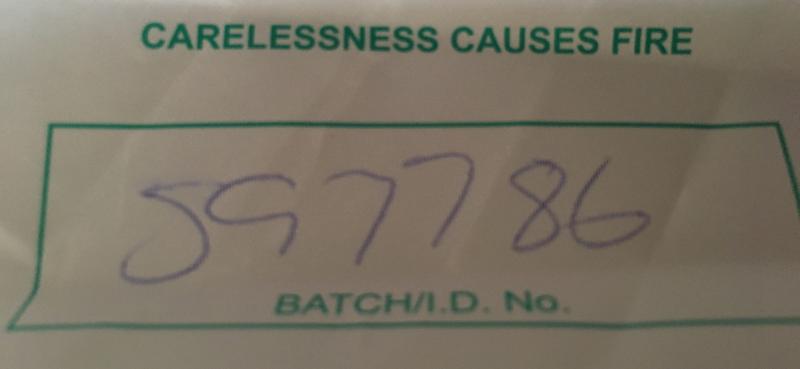 CARELESSNESS CAUSES FIRE
597786
BATCH/I.D. No.